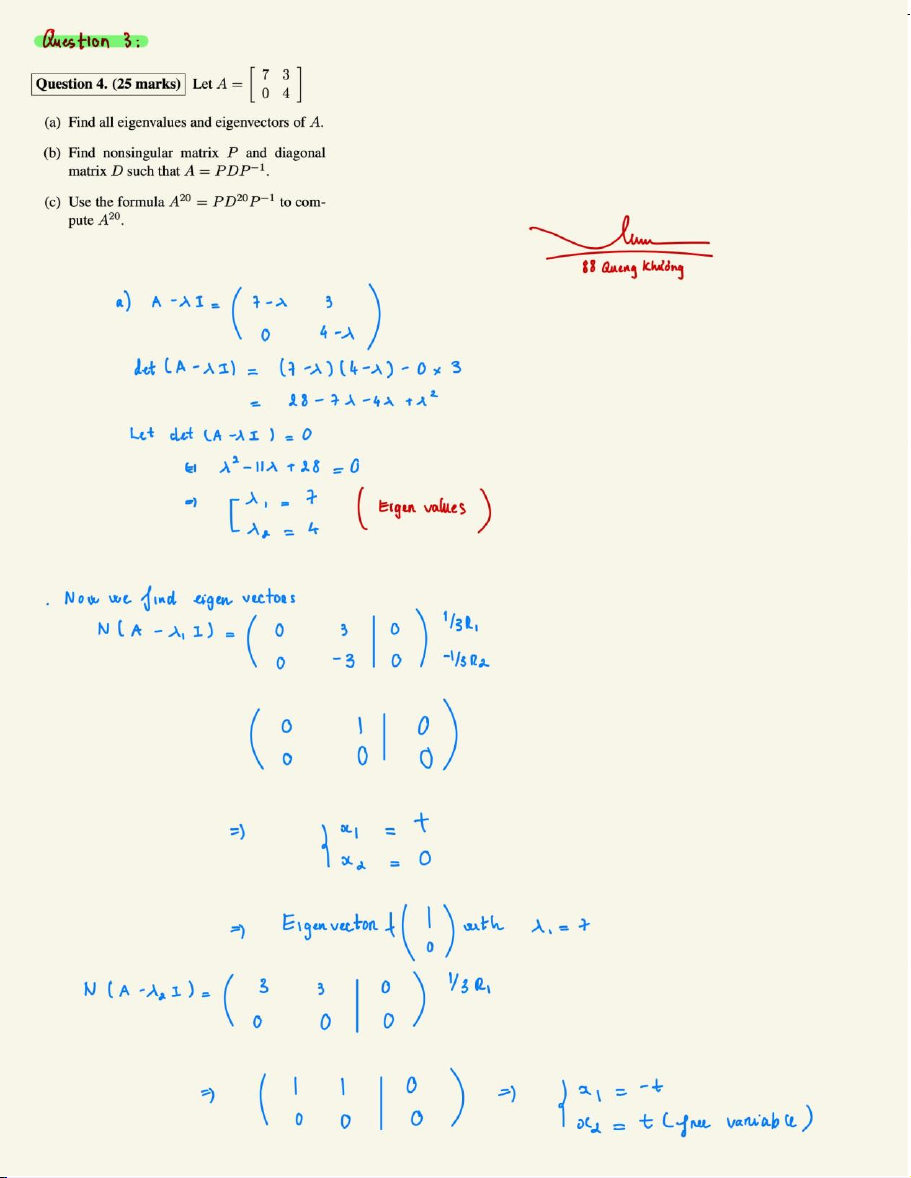 Question 3:
Question 4. (25 marks) Let A = [ 7 3
0 4 ]
(a) Find all eigenvalues and eigenvectors of A.
(b) Find nonsingular matrix P and diagonal
matrix D such that A = PDP⁻¹.
(c) Use the formula A²⁰ = PD²⁰P⁻¹ to com-
pute A²⁰.
88 Quang Khường
a) A - λI = ( 7-λ 3
0 4-λ )
det (A - λI) = (7-λ)(4-λ) - 0 × 3
= 28 - 7λ - 4λ + λ²
Let det (A - λI) = 0
λ² - 11λ + 28 = 0
=) [ λ₁ = 7
λ₂ = 4 (Eigen values)
. Now we find eigen vectors
N(A - λ₁I) = ( 0 3 | 0 ) 1/3R₁
( 0 -3 | 0 ) -1/3R₂
( 0 1 | 0 )
( 0 0 | 0 )
=) { x₁ = t
x₂ = 0
=) Eigenvector t ( 1
0 ) with λ₁ = 7
N(A - λ₂I) = ( 3 3 | 0 ) 1/3R₁
( 0 0 | 0 )
=) ( 1 1 | 0 ) =) { x₁ = -t
( 0 0 | 0 ) x₂ = t (free variable)